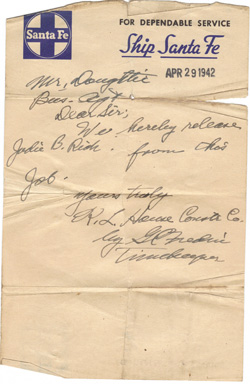 Santa Fe
FOR DEPENDABLE SERVICE
Ship Santa Fe
APR 29 1942
Mr.
Bus. Agt.
Dear Sir;
We hereby release
Jodie B. from this
Job.
Yours truly
R. L. House Constr Co.
by
Timekeeper